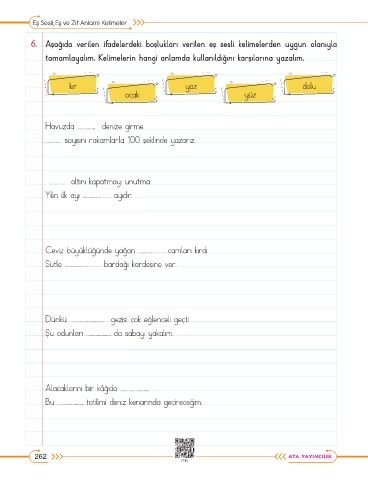 Eş Sesli, Eş ve Zıt Anlamlı Kelimeler
6. Aşağıda verilen ifadelerdeki boşlukları verilen eş sesli kelimelerden uygun olanıyla
tamamlayalım. Kelimelerin hangi anlamda kullanıldığını karşılarına yazalım.
kır
ocak
yaz
yüz
dolu
Havuzda ............, denize girme.
............ sayısını rakamlarla 100 şeklinde yazarız.
............ altını kapatmayı unutma.
Yılın ilk ayı ............ ayıdır.
Ceviz büyüklüğünde yağan ............ camları kırdı.
Sütle ............ bardağı kardeşine ver.
Dünkü ............ gezisi çok eğlenceli geçti.
Şu odunları ............ da sobayı yakalım.
Alacaklarını bir kâğıda ............
Bu ............ tatilimi deniz kenarında geçireceğim.
262
ATA YAYINCILIK